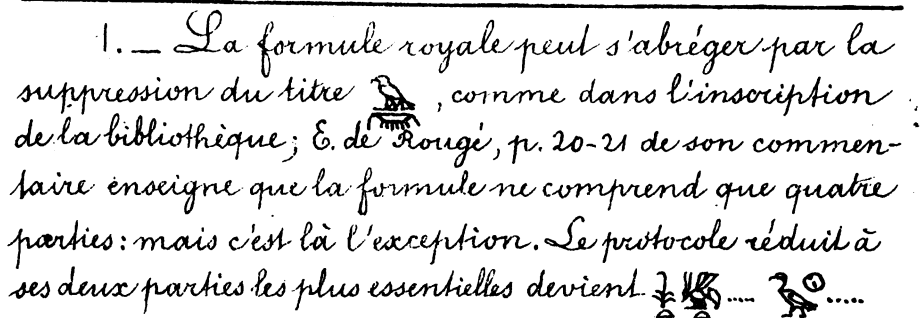 1. — La formule royale peut s'abréger par la
suppression du titre 𓅉, comme dans l'inscription
de la bibliothèque; E. de Rougé, p. 20-21 de son commen-
taire enseigne que la formule ne comprend que quatre
parties: mais c'est là l'exception. Le protocole réduit à
ses deux parties les plus essentielles devient 𓇓𓏏𓆤𓏏..... 𓅭𓇳.....